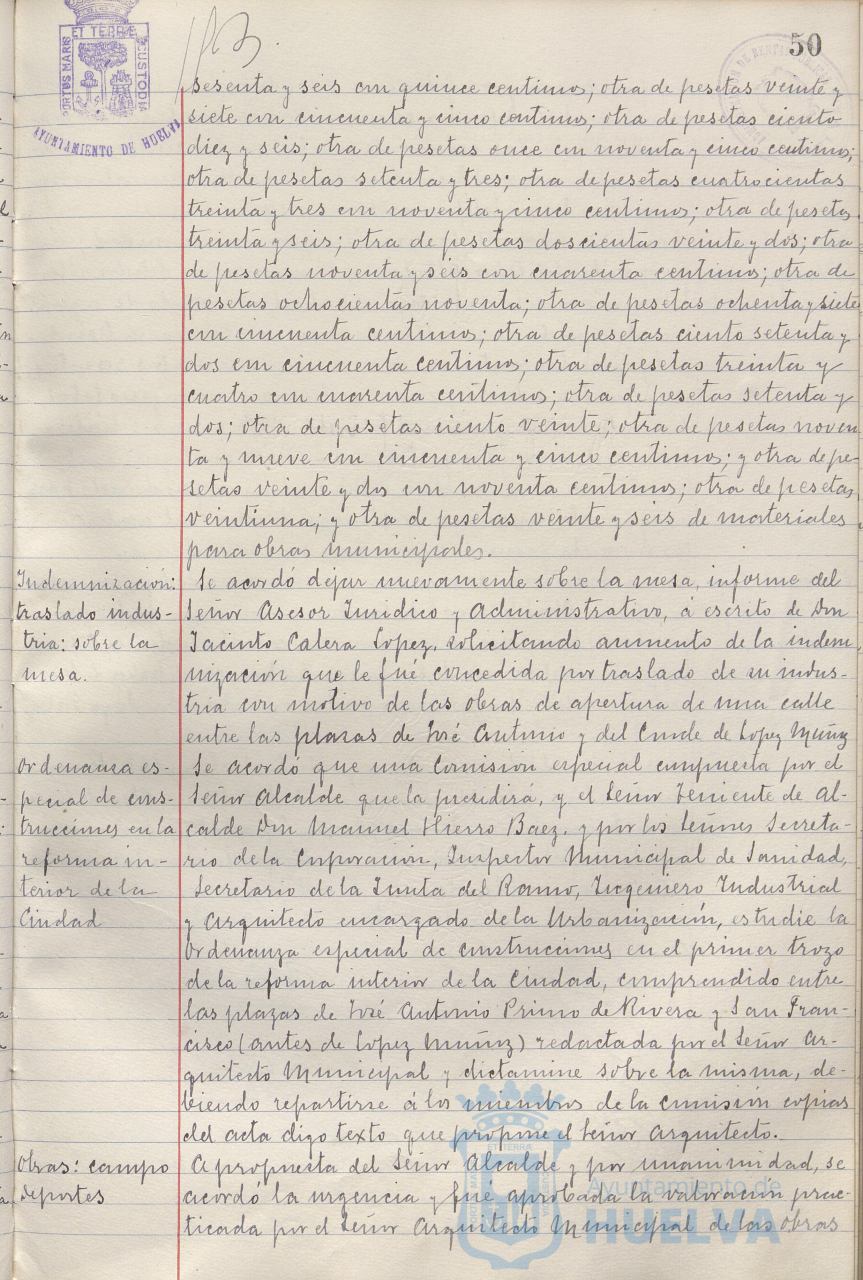 50
ET TERRÆ
PORTUS MARIS
CUSTODIA
AYUNTAMIENTO DE HUELVA
sesenta y seis con quince centimos; otra de pesetas veinte y
siete con cincuenta y cinco centimos; otra de pesetas ciento
diez y seis; otra de pesetas once con noventa y cinco centimos;
otra de pesetas setenta y tres; otra de pesetas cuatrocientas
treinta y tres con noventa y cinco centimos; otra de pesetas
treinta y seis; otra de pesetas doscientas veinte y dos; otra
de pesetas noventa y seis con cuarenta centimos; otra de
pesetas ochocientas noventa; otra de pesetas ochenta y siete
con cincuenta centimos; otra de pesetas ciento setenta y
dos con cincuenta centimos; otra de pesetas treinta y
cuatro con cuarenta centimos; otra de pesetas setenta y
dos; otra de pesetas ciento veinte; otra de pesetas noven
ta y nueve con cincuenta y cinco centimos; y otra de pe-
setas veinte y dos con noventa centimos; otra de pesetas
veintiuna; y otra de pesetas veinte y seis de materiales
para obras municipales.
Indemnización:
traslado indus-
tria: sobre la
mesa.
Se acordó dejar nuevamente sobre la mesa, informe del
Señor Asesor Juridico y Administrativo, á escrito de Don
Jacinto Calera Lopez, solicitando aumento de la indem
nización que le fué concedida por traslado de su indus-
tria con motivo de las obras de apertura de una calle
entre las plazas de José Antonio y del Conde de Lopez Muñoz
Ordenanza es-
pecial de cons-
trucciones en la
reforma in-
terior de la
Ciudad
Se acordó que una Comisión especial compuesta por el
Señor Alcalde que la presidirá, y el Señor Teniente de Al-
calde Don Manuel Hierro Baez, y por los Señores Secreta-
rio de la Corporación, Inspector Municipal de Sanidad,
Secretario de la Junta del Ramo, Ingeniero Industrial
y Arquitecto encargado de la Urbanización, estudie la
Ordenanza especial de construcciones en el primer trozo
de la reforma interior de la Ciudad, comprendido entre
las plazas de José Antonio Primo de Rivera y San Fran-
cisco (antes de Lopez Muñoz) redactada por el Señor Ar-
quitecto Municipal y dictamine sobre la misma, de-
biendo repartirse á los miembros de la comisión copias
del acta digo texto que propone el Señor Arquitecto.
Obras: campo
deportes
A propuesta del Señor Alcalde y por unanimidad, se
acordó la urgencia y fué aprobada la valoración prac-
ticada por el Señor Arquitecto Municipal de las obras
Ayuntamiento de
HUELVA